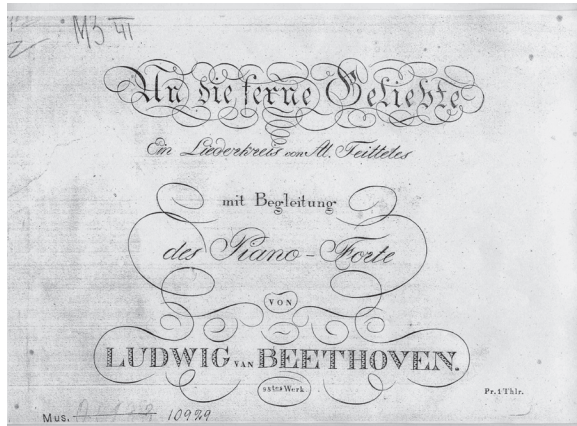 M3 VI
An die ferne Geliebte
Ein Liederkreis von Al. Jeitteles
mit Begleitung
des Piano-Forte
VON
LUDWIG VAN BEETHOVEN.
98tes Werk
Pr. 1 Thlr.
Mus. 10929